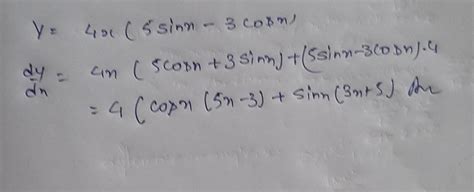 y = 4x ( 5 sinx - 3 cosx)
dy/dx = 4x ( 5cosx + 3 sinx) + (5sinx - 3cosx) . 4
= 4 ( cosx (5x - 3) + sinx (3x + 5) Ans